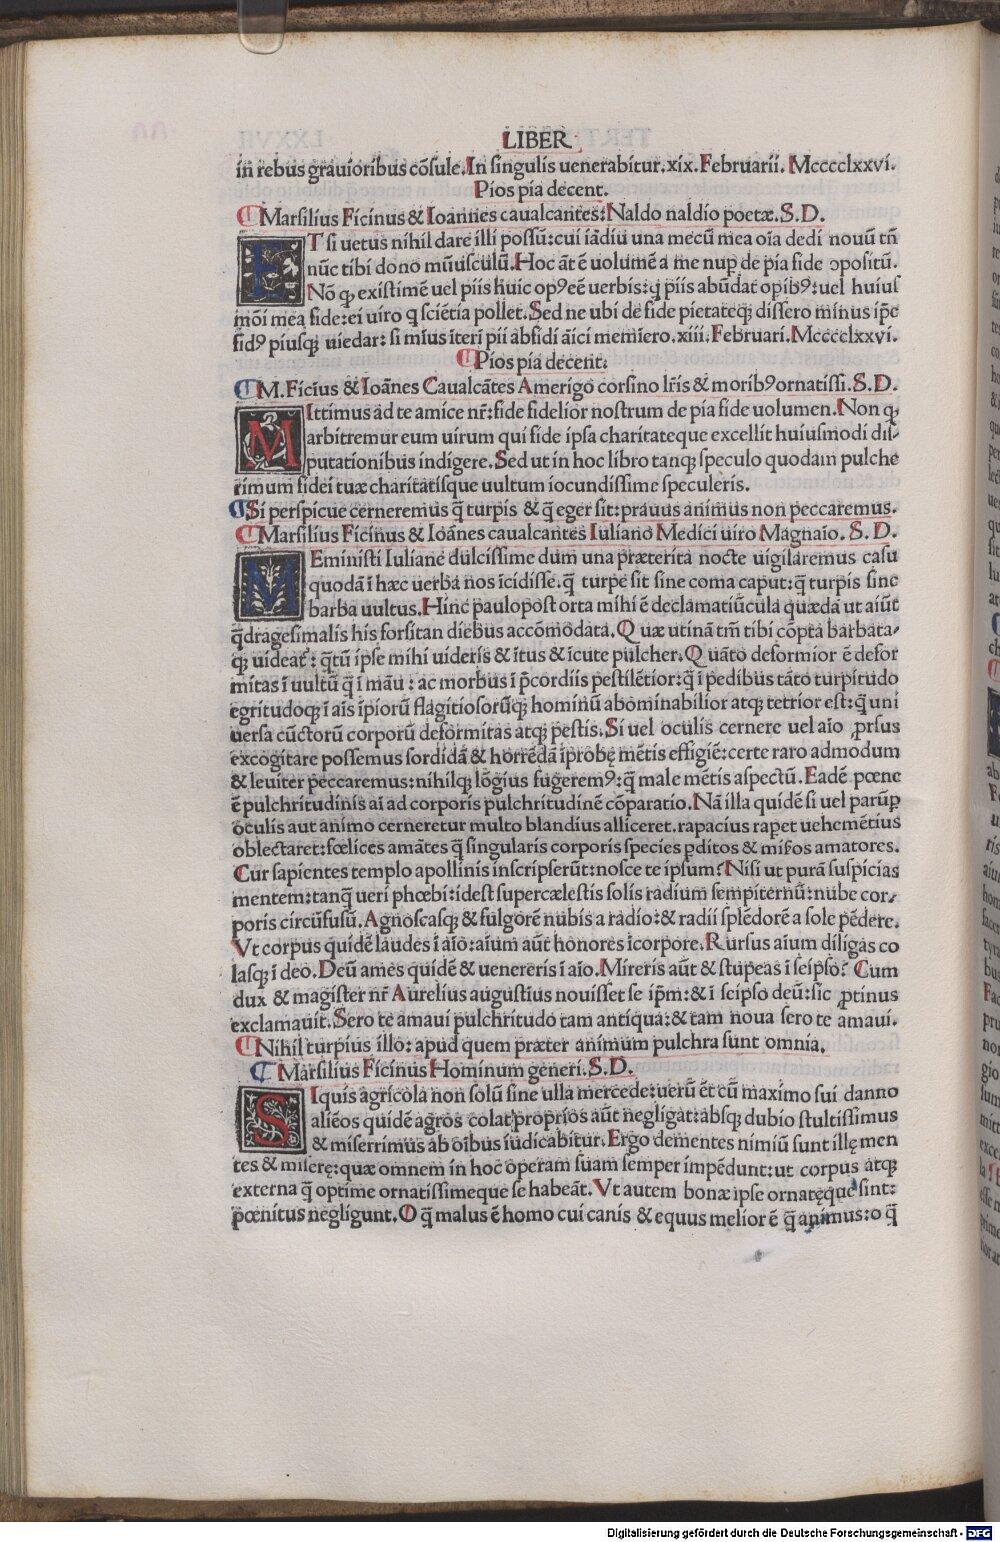 LIBER
in rebus grauioribus cõſule. In ſingulis uenerabitur. xix. Februarii. Mcccclxxvi.
Pios pia decent.
Marſilius Ficinus & Ioannes caualcantes: Naldo naldio poetæ. S. D.
ET ſi uetus nihil dare illi poſſũ: cui iãdiu una mecũ mea oĩa dedi nouũ tñ
nũc tibi dono mũuſculũ. Hoc ãt ē uolumē a me nup de pia fide ɔpoſitũ.
Nõ ꝙ exiſtimē uel piis huic opꝰ eē uerbis: ꝗ piis abũdat opibꝰ: uel huiuſ
mõi mea fide: ei uiro q ſciētia pollet. Sed ne ubi de fide pietateqꝫ diſſero minus ip̄e
fidꝰ piusqꝫ uiedar: ſi mius iteri pii abſidi ãici memiero. xiii. Februari. Mcccclxxvi.
Pios pia decent.
M. Ficius & Ioãnes Caualcãtes Amerigo corſino lr̄is & moribꝰ ornatiſſi. S. D.
MIttimus ad te amice nr̄: fide fidelior noſtrum de pia fide uolumen. Non ꝙ
arbitremur eum uirum qui fide ipſa charitateque excellit huiuſmodi diſ⸗
putationibus indigere. Sed ut in hoc libro tanqꝫ ſpeculo quodam pulche
rimum fidei tuæ charitatiſque uultum iocundiſſime ſpeculeris.
Si perſpicue cerneremus q̃ turpis & q̃ eger ſit: prauus animus non peccaremus.
Marſilius Ficinus & Ioãnes caualcantes Iuliano Medici uiro Magnaio. S. D.
MEminiſti Iuliane dulciſſime dum una præterita nocte uigilaremus caſu
quodã ĩ hæc uerba nos ĩcidiſſe. q̃ turpe ſit ſine coma caput: q̃ turpis ſine
barba uultus. Hinc paulopoſt orta mihi ē declamatiũcula quædã ut aiũt
q̃drageſimalis his forſitan diebus accõmodata. Quæ utinã tm̄ tibi cõpta barbata⸗
qꝫ uideat᷑: q̃tũ ipſe mihi uideris & ĩtus & ĩcute pulcher. Quãto deformior ē defor
mitas ĩ uultũ q̃ ĩ mãu: ac morbus ĩ p̄cordiis peſtilētior: q̃ ĩ pedibus tãto turpitudo
egritudoqꝫ ĩ aĩs ĩpiorũ flagitioſorũqꝫ hominũ abominabilior atqꝫ tetrior eſt: q̃ uni
uerſa cũctorũ corporũ deformitas atqꝫ peſtis. Si uel oculis cernere uel aĩo ꝓrſus
excogitare poſſemus ſordidã & horrēdã ĩprobę mētis effigiē: certe raro admodum
& leuiter peccaremus: nihilqꝫ lõgius fugeremꝰ: q̃ male mētis aſpectũ. Eadē pœne
ē pulchritudinis aĩ ad corporis pulchritudinē cõparatio. Nã illa quidē ſi uel parũꝑ
oculis aut animo cerneretur multo blandius alliceret. rapacius rapet uehemētius
oblectaret: fœlices amãtes q̃ ſingularis corporis ſpecies pditos & miſ̃os amatores.
Cur ſapientes templo apollinis inſcripſerũt: noſce te ipſum? Niſi ut purã ſuſpicias
mentem: tanq̃ ueri phœbi: ideſt ſupercæleſtis ſolis radium ſempiternũ: nube cor⸗
poris circũfuſũ. Agnoſcaſqꝫ & fulgorē nubis a radio: & radii ſplēdorē a ſole pēdere.
Vt corpus quidē laudes ĩ aĩo: aĩum aũt honores ĩcorpore. Rurſus aĩum diligas co
laſqꝫ ĩ deo. Deũ ames quidē & uenereris ĩ aĩo. Mireris aũt & ſtupeas ĩ ſeipſo? Cum
dux & magiſter nr̄ Aurelius auguſtius nouiſſet ſe ip̄m: & ĩ ſeipſo deũ: ſic ꝓtinus
exclamauit. Sero te amaui pulchritudo tam antiqua: & tam noua ſero te amaui.
Nihil turpius illo: apud quem præter animum pulchra ſunt omnia.
Marſilius Ficinus Hominum generi. S. D.
SIquis agricola non ſolũ ſine ulla mercede: uerũ ēt cũ maximo ſui danno
aliēos quidē agros colat proprios aũt negligat: abſqꝫ dubio ſtultiſſimus
& miſerrimus ab oĩbus iudicabitur. Ergo dementes nimiũ ſunt illę men
tes & miſerę: quæ omnem in hoc operam ſuam ſemper impēdunt: ut corpus atqꝫ
externa q̃ optime ornatiſſimeque ſe habeãt. Vt autem bonæ ipſe ornatęque ſint:
pœnitus negligunt. O q̃ malus ē homo cui canis & equus melior ē q̃ animus: o q̃
Digitalisierung gefördert durch die Deutsche Forschungsgemeinschaft - DFG